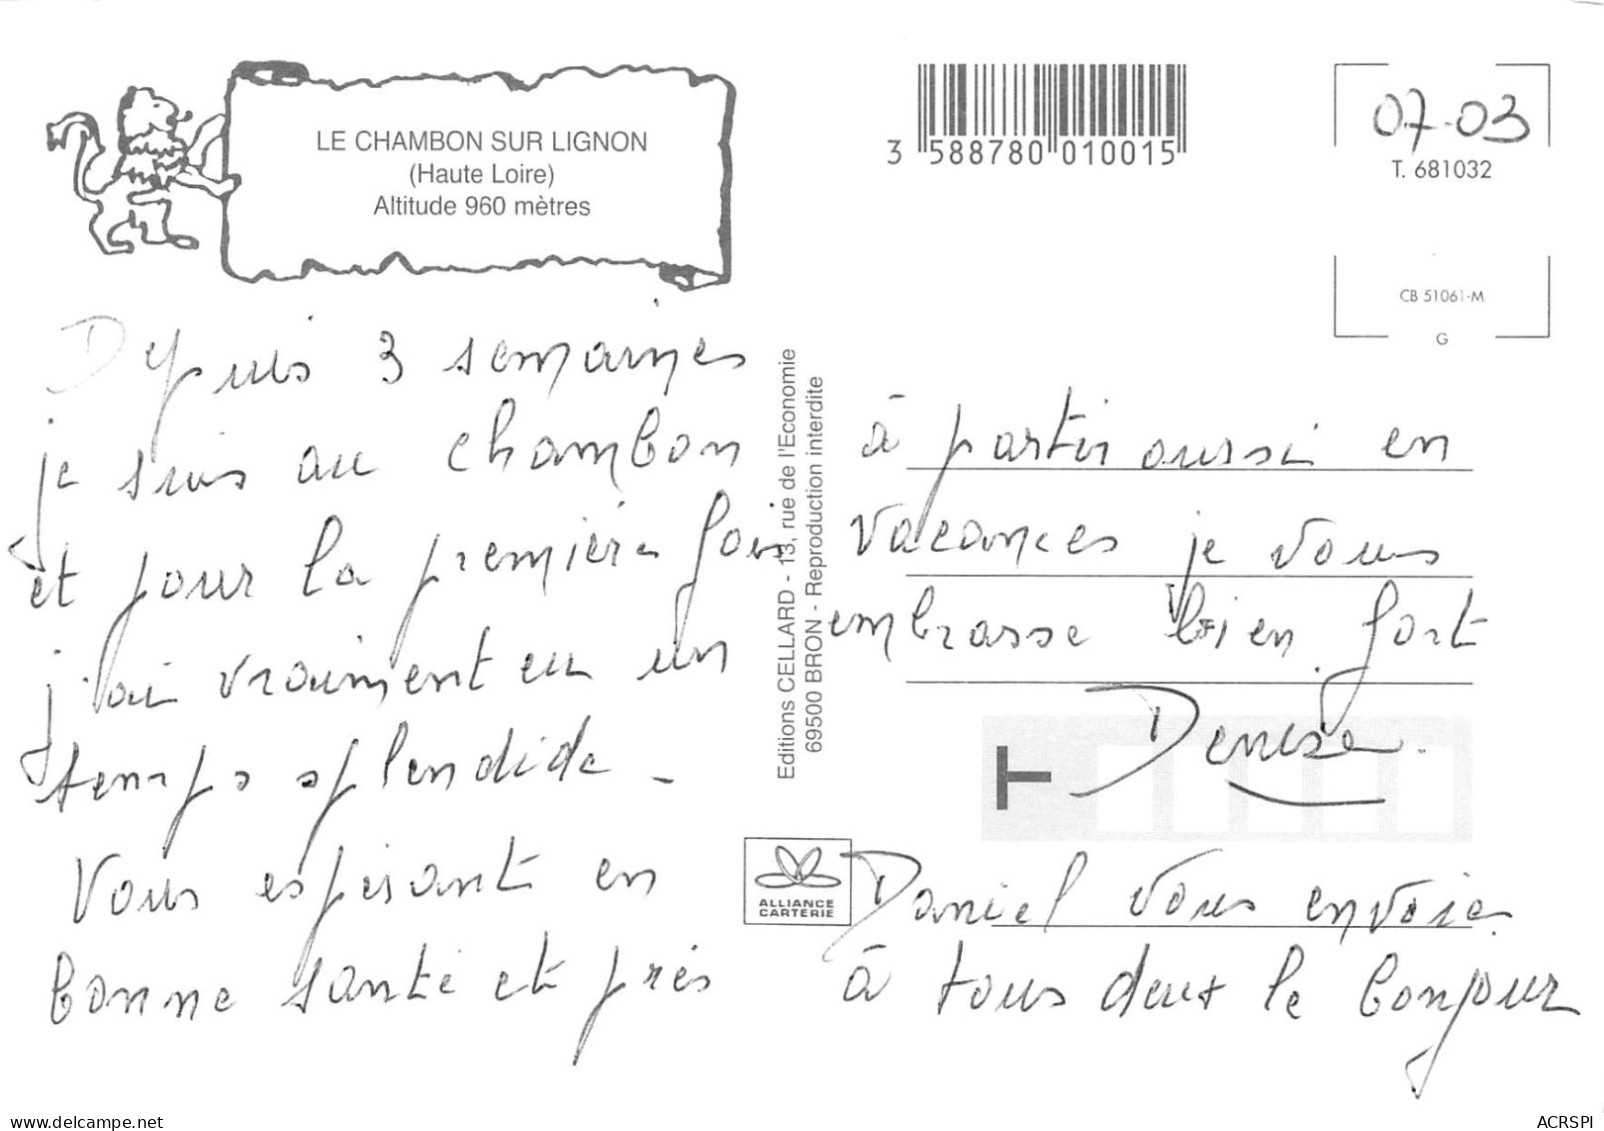 LE CHAMBON SUR LIGNON
(Haute Loire)
Altitude 960 mètres
3 588780 010015
07-03
T. 681032
CB 51061-M
G
Depuis 3 semaines
je suis au chambon
et pour la première fois
j'ai vraiment eu un
temps splendide -
Vous espérant en
bonne santé et près
Editions CELLARD - 13, rue de l'Economie
69500 BRON - Reproduction interdite
à partir aussi en
vacances je vous
embrasse bien fort
Denise.
T
ALLIANCE
CARTERIE
Daniel vous envoie
à tous deux le bonjour
delcampe.net
ACRSPI